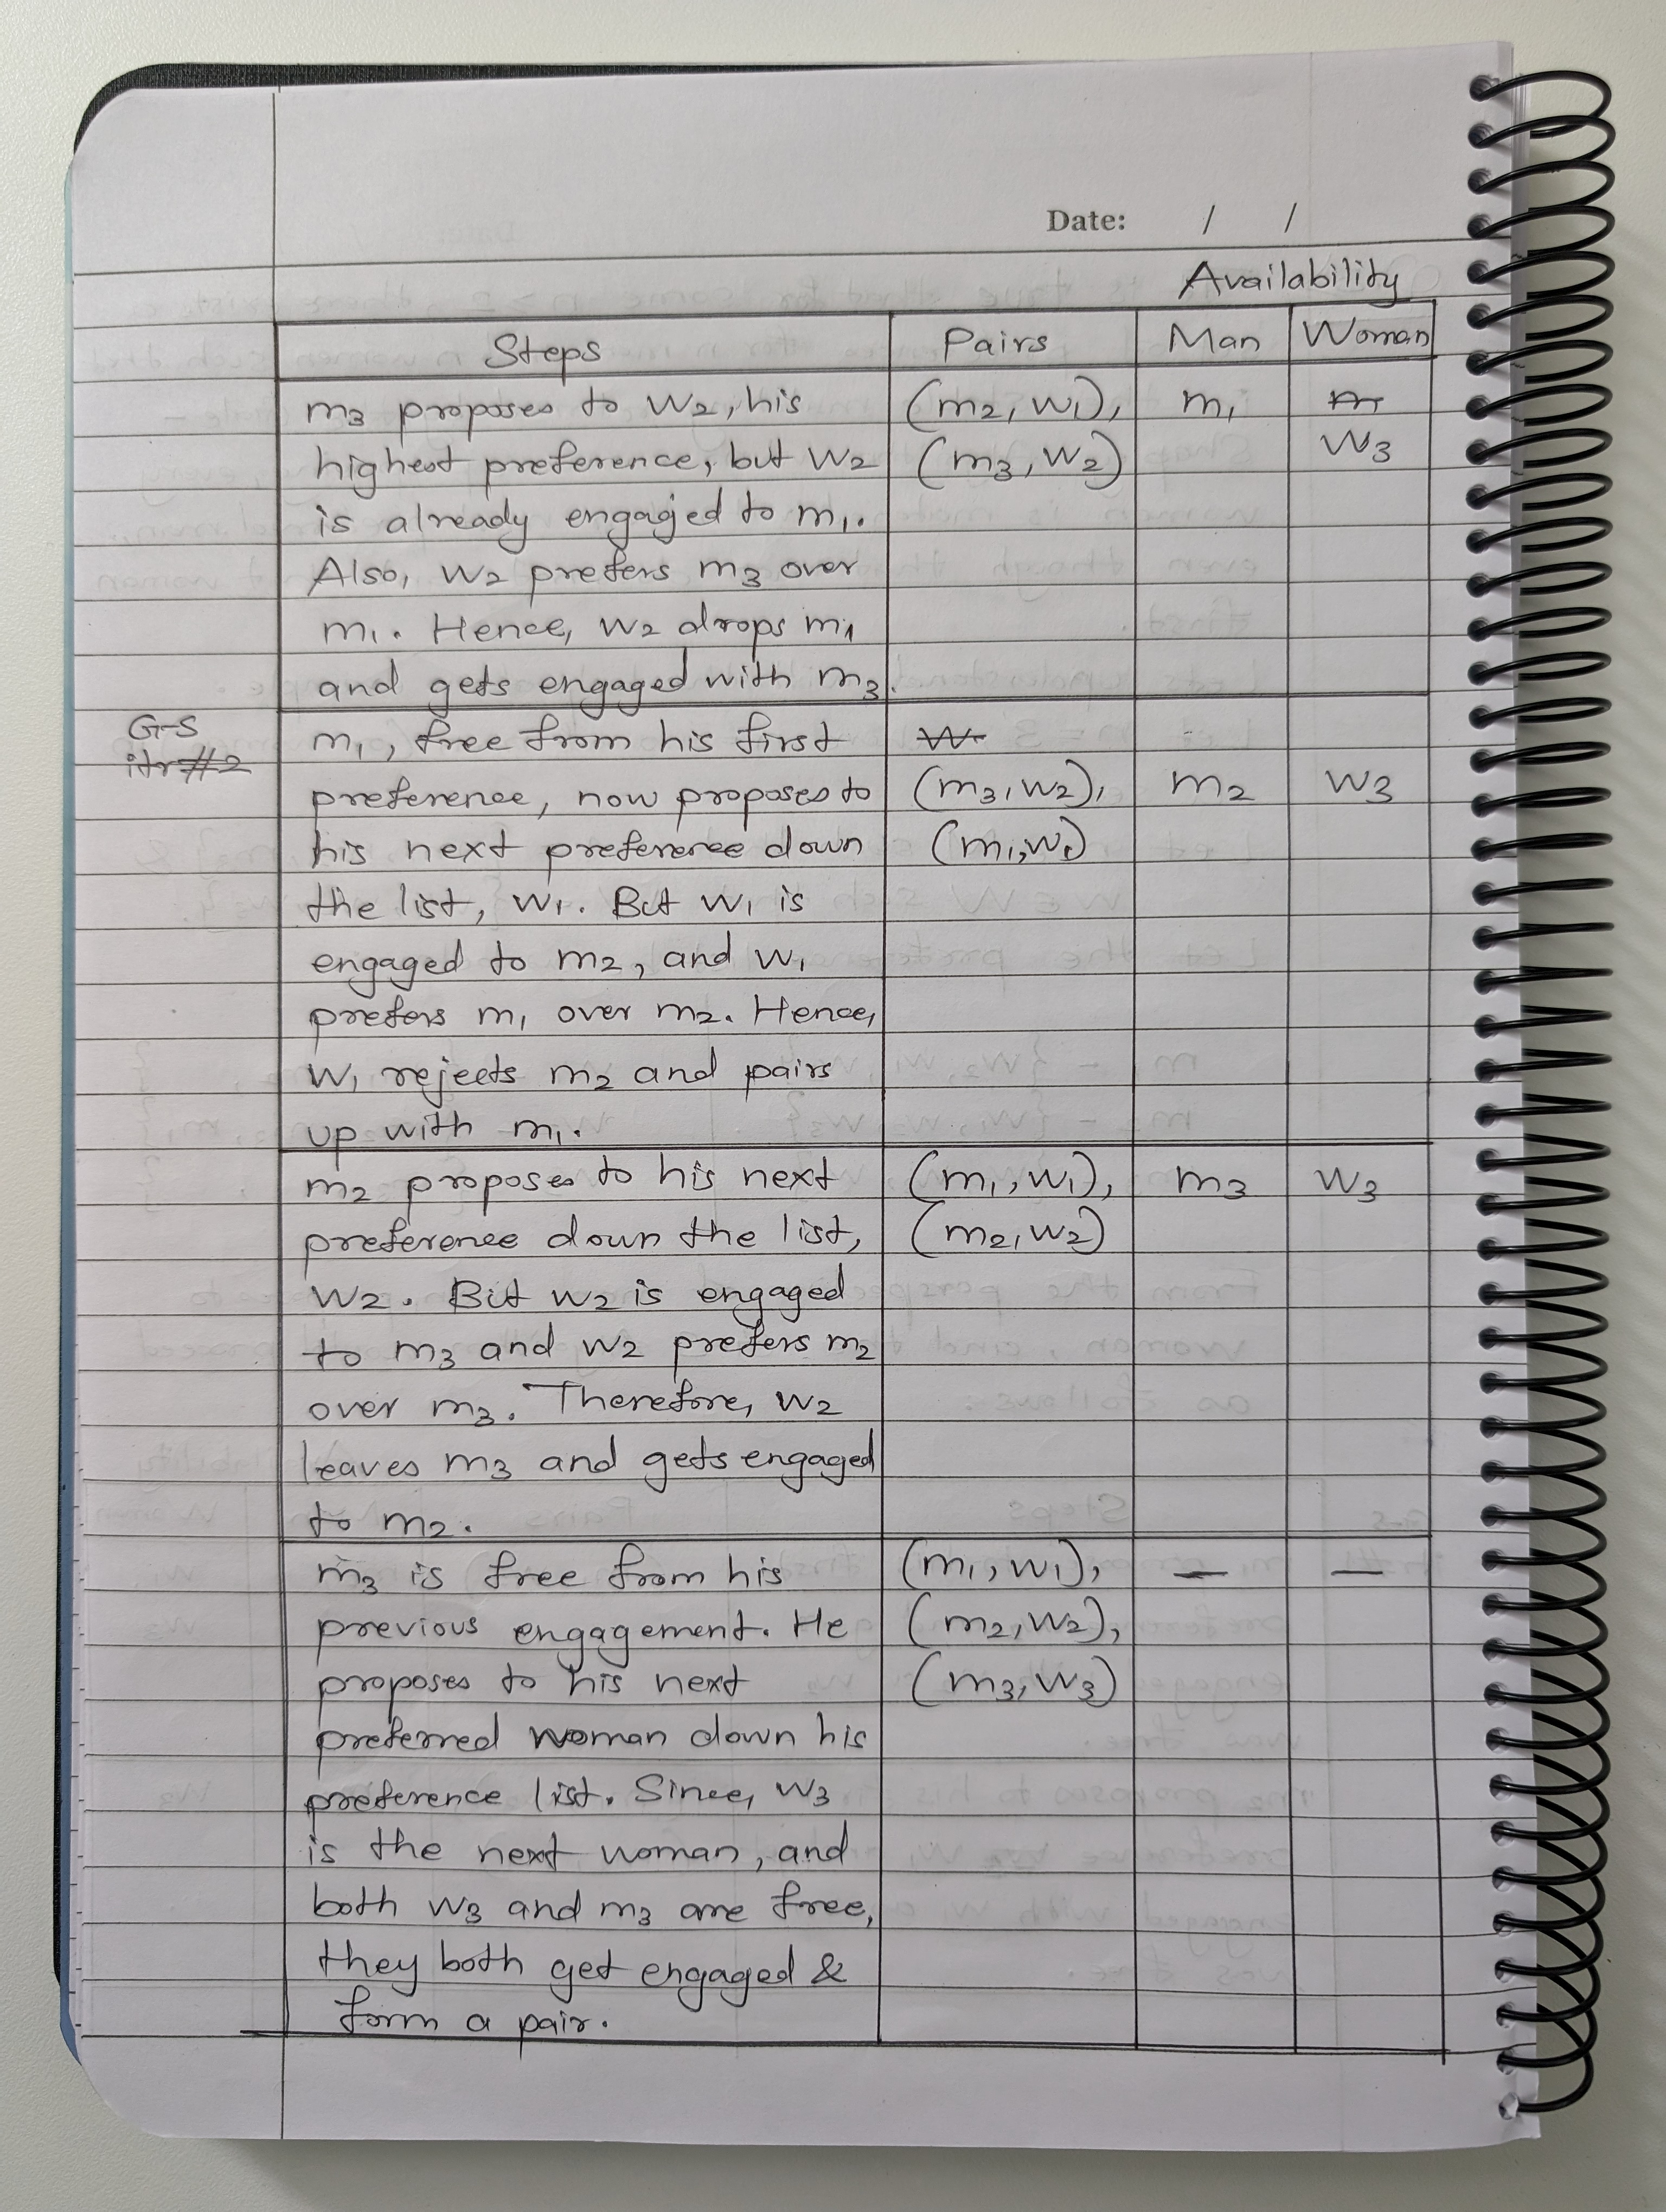 Date: / /
Availability
Steps Pairs Man Woman
m3 proposes to W2, his (m2, W1), m1
highest preference, but W2 (m3, W2) W3
is already engaged to m1.
Also, W2 prefers m3 over
m1. Hence, W2 drops m1
and gets engaged with m3.
G-S m1, free from his first
itr#2 preference, now proposes to (m3, W2), m2 W3
his next preference down (m1, W1)
the list, W1. But W1 is
engaged to m2, and W1
prefers m1 over m2. Hence,
W1 rejects m2 and pairs
up with m1.
m2 proposes to his next (m1, W1), m3 W3
preference down the list, (m2, W2)
W2. But W2 is engaged
to m3 and W2 prefers m2
over m3. Therefore, W2
leaves m3 and gets engaged
to m2.
m3 is free from his (m1, W1), — —
previous engagement. He (m2, W2),
proposes to his next (m3, W3)
preferred woman down his
preference list. Since, W3
is the next woman, and
both W3 and m3 are free,
they both get engaged &
form a pair.